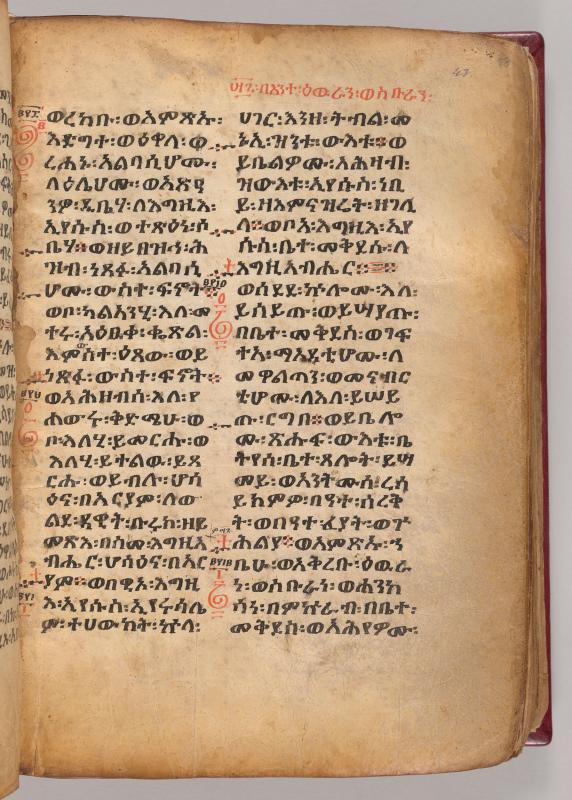 ፵፫፡በእንተ፡ዕውራን፡ወስቡራን፡
43
ወረከቡ፡ወአምጽኡ፡
እድግተ፡ወዕዋለ፡ወ
ረሐኑ፡አልባሲሆሙ፡
ላዕሌሆሙ፡ወአጽዓ
ንዎ፡ዲቤሃ፡ለእግዚእ፡
ኢየሱስ፡ወተጽዕነ፡ዲ
ቤሃ።ወዘይበዝኅ፡ሕ
ዝብ፡ነጸፉ፡አልባሲ
ሆሙ፡ውስተ፡ፍኖት።
ወቦ፡ካልኣን፡እለ፡መ
ተሩ፡አዕፁቀ፡ቈጽል፡
እምስተ፡ዕጸው፡ወይ
ነጽፉ፡ውስተ፡ፍኖት።
ወአሕዘብሰ፡እለ፡የ
ሐውሩ፡ቅድሜሁ፡ወ
ቦ፡እለሂ፡ይመርሑ፡ወ
እለሂ፡ይተልዉ፡ይጸ
ርሑ፡ወይብሉ፡ሆሳ
ዕና፡በአርያም፡ለወ
ልደ፡ዳዊት፡ቡሩክ፡ዘይ
መጽእ፡በስመ፡እግዚአ
ብሔር፡ሆሳዕና፡በአር
ያም።ወበዊኦ፡እግዚ
እ፡ኢየሱስ፡ኢየሩሳሌ
ም፡ተሀውከት፡ኵላ፡
ሀገር፡እንዘ፡ትብል፡መ
ኑ፡ዝንቱ፡ውእቱ።ወ
ይቤልዎሙ፡አሕዛብ፡
ዝውእቱ፡ኢየሱስ፡ነቢ
ይ፡ዘእምናዝሬት፡ዘገሊ
ላ።ወቦአ፡እግዚእ፡ኢየ
ሱስ፡ቤተ፡መቅደሱ፡ለ
እግዚአብሔር።
ወሰደደ፡ኵሎሙ፡እለ፡
ይሰይጡ፡ወይሣየጡ፡
በቤተ፡መቅደስ፡ወገፍ
ተአ፡ማእዳቲሆሙ፡ለ
መዋልጣን፡ወመናብር
ቲሆሙ፡ለእለ፡ይሠይ
ጡ፡ርግበ።ወይቤሎ
ሙ፡ጽሑፍ፡ውእቱ፡ቤ
ትየሰ፡ቤተ፡ጸሎት፡ይሣ
መይ፡ወአንትሙሰ፡ረሳ
ይክምዎ፡በዓተ፡ሰረቅ
ት፡ወበዓተ፡ፈያት፡ወፐ
ሕልያ።ወአምጽኡ፡ኀ
ቤሁ፡ወአቅረቡ፡ዕዉራ
ነ፡ወስቡራነ፡ወሐንካ
ሳነ፡በምኵራብ፡በቤተ፡
መቅደስ፡ወአሕየዎሙ፡